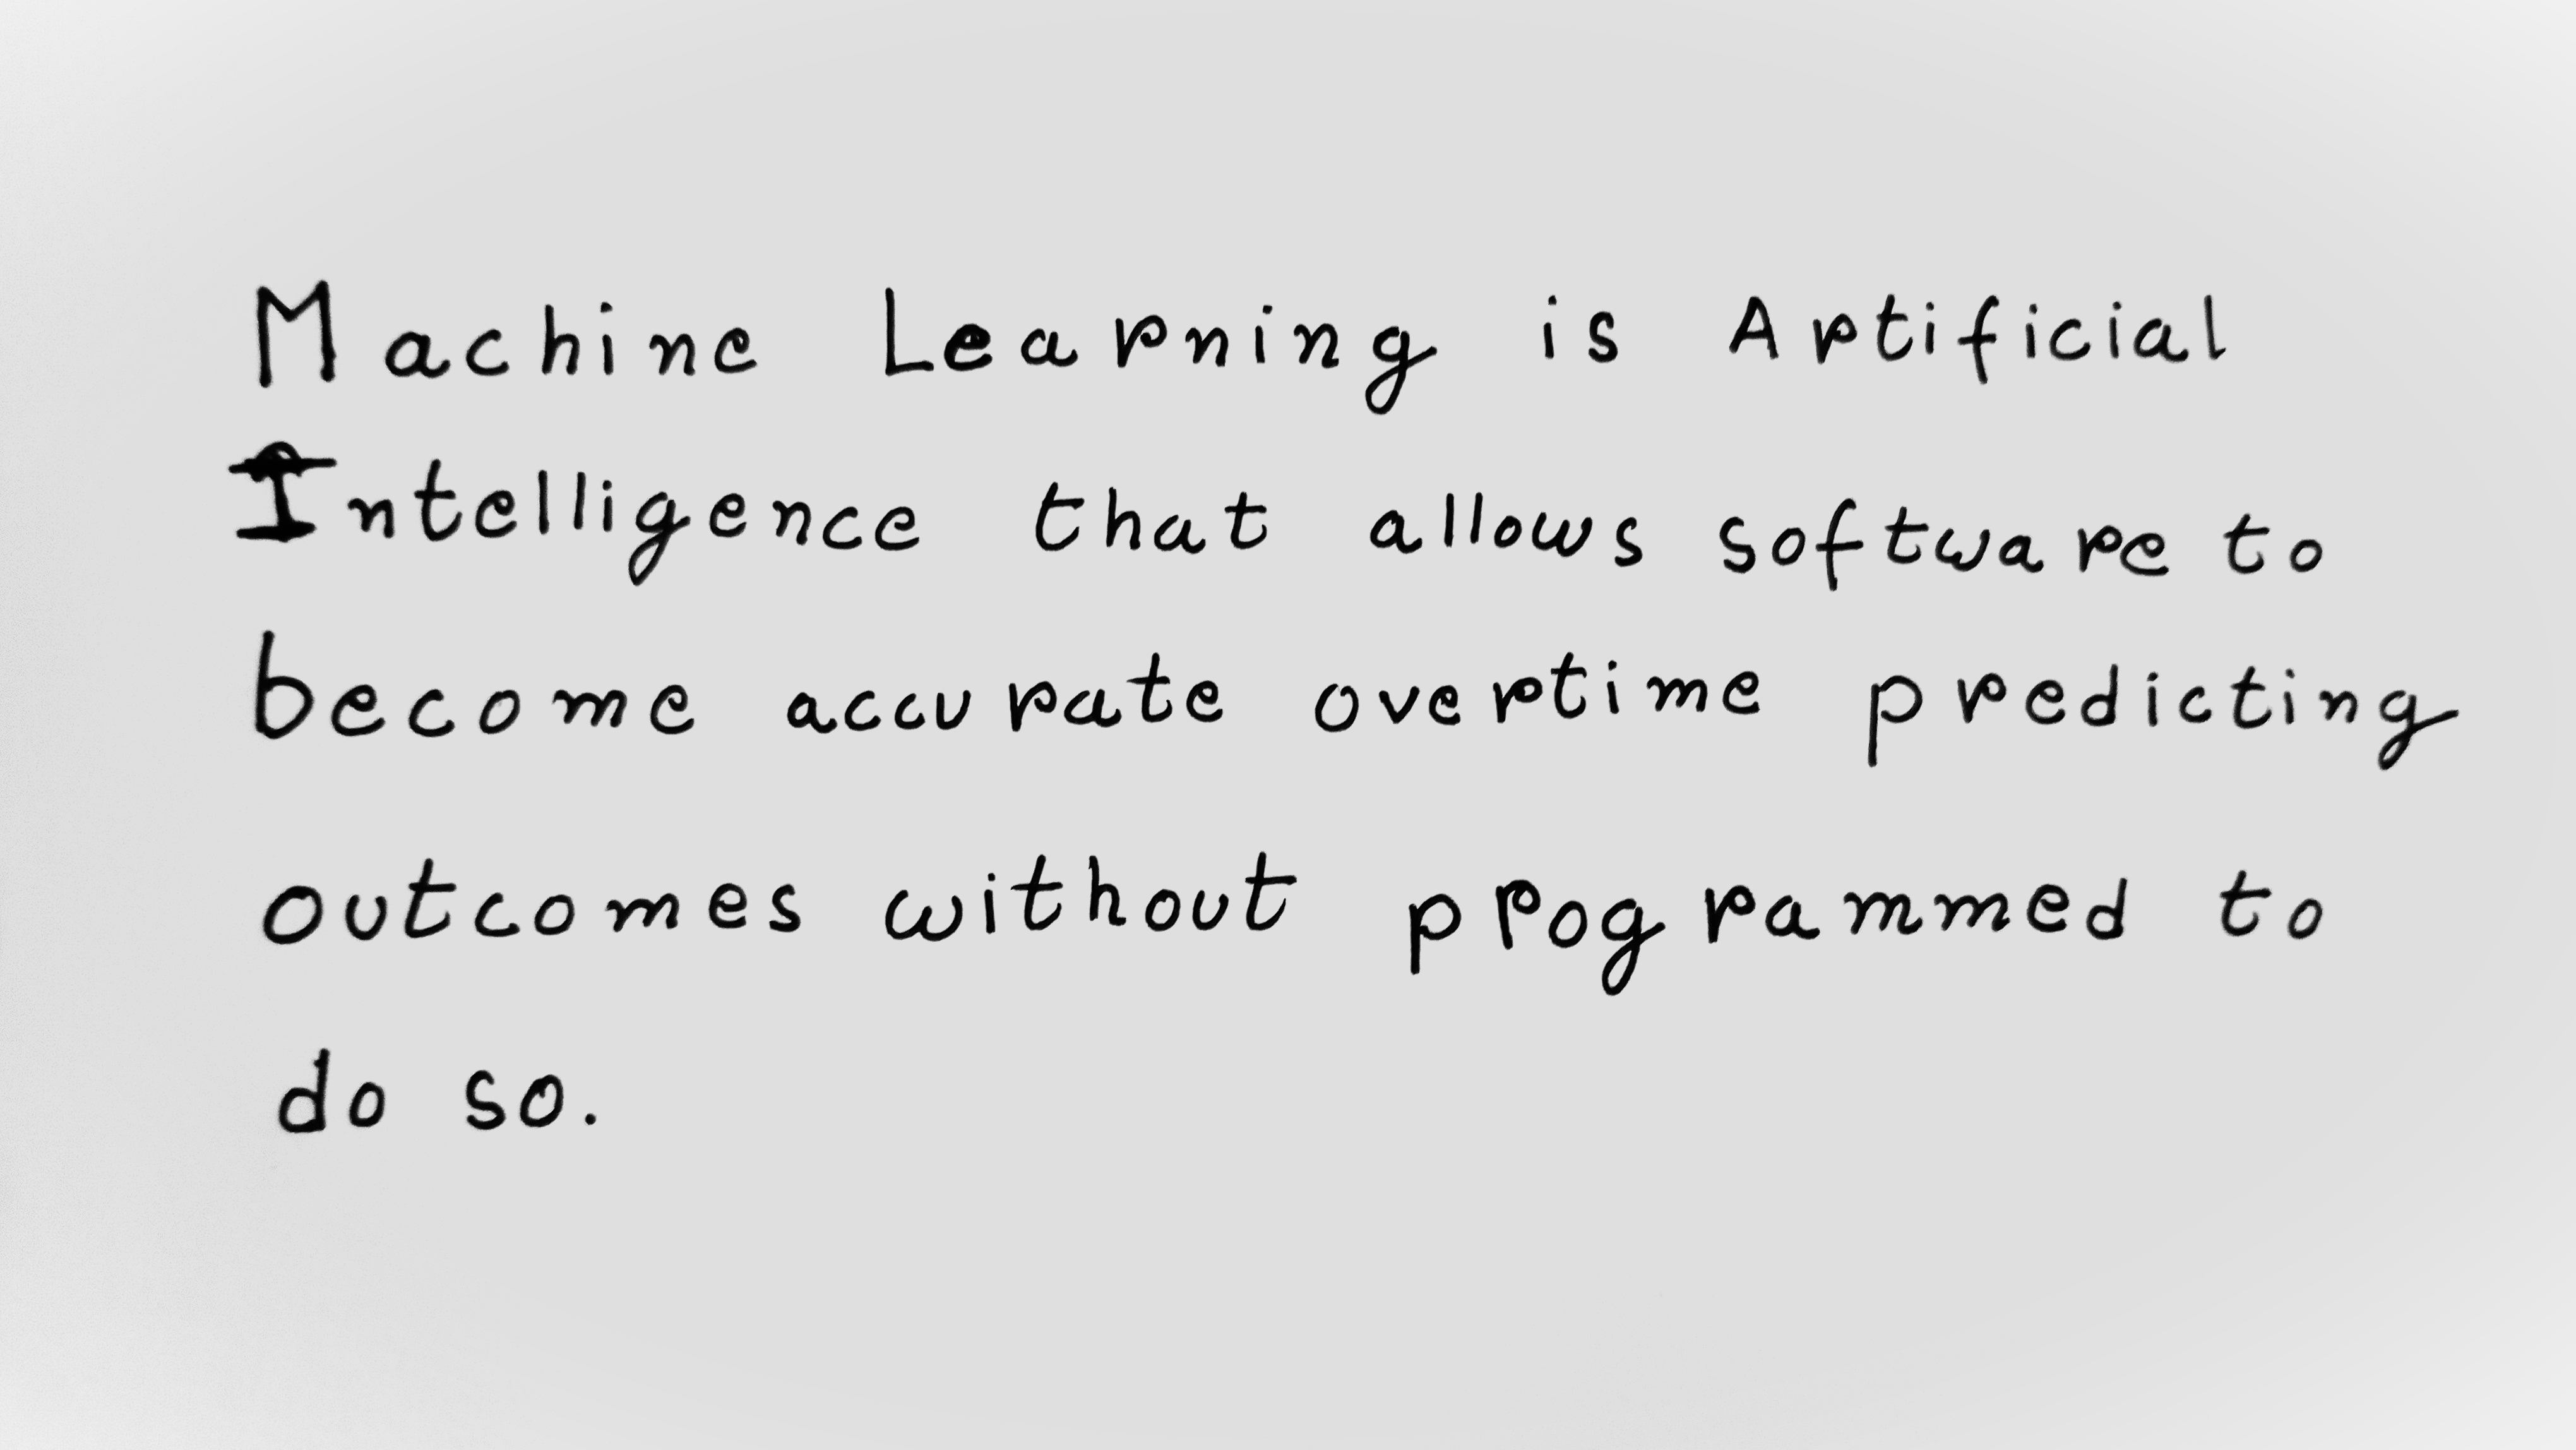 Machine Learning is Artificial
Intelligence that allows software to
become accurate overtime predicting
outcomes without programmed to
do so.